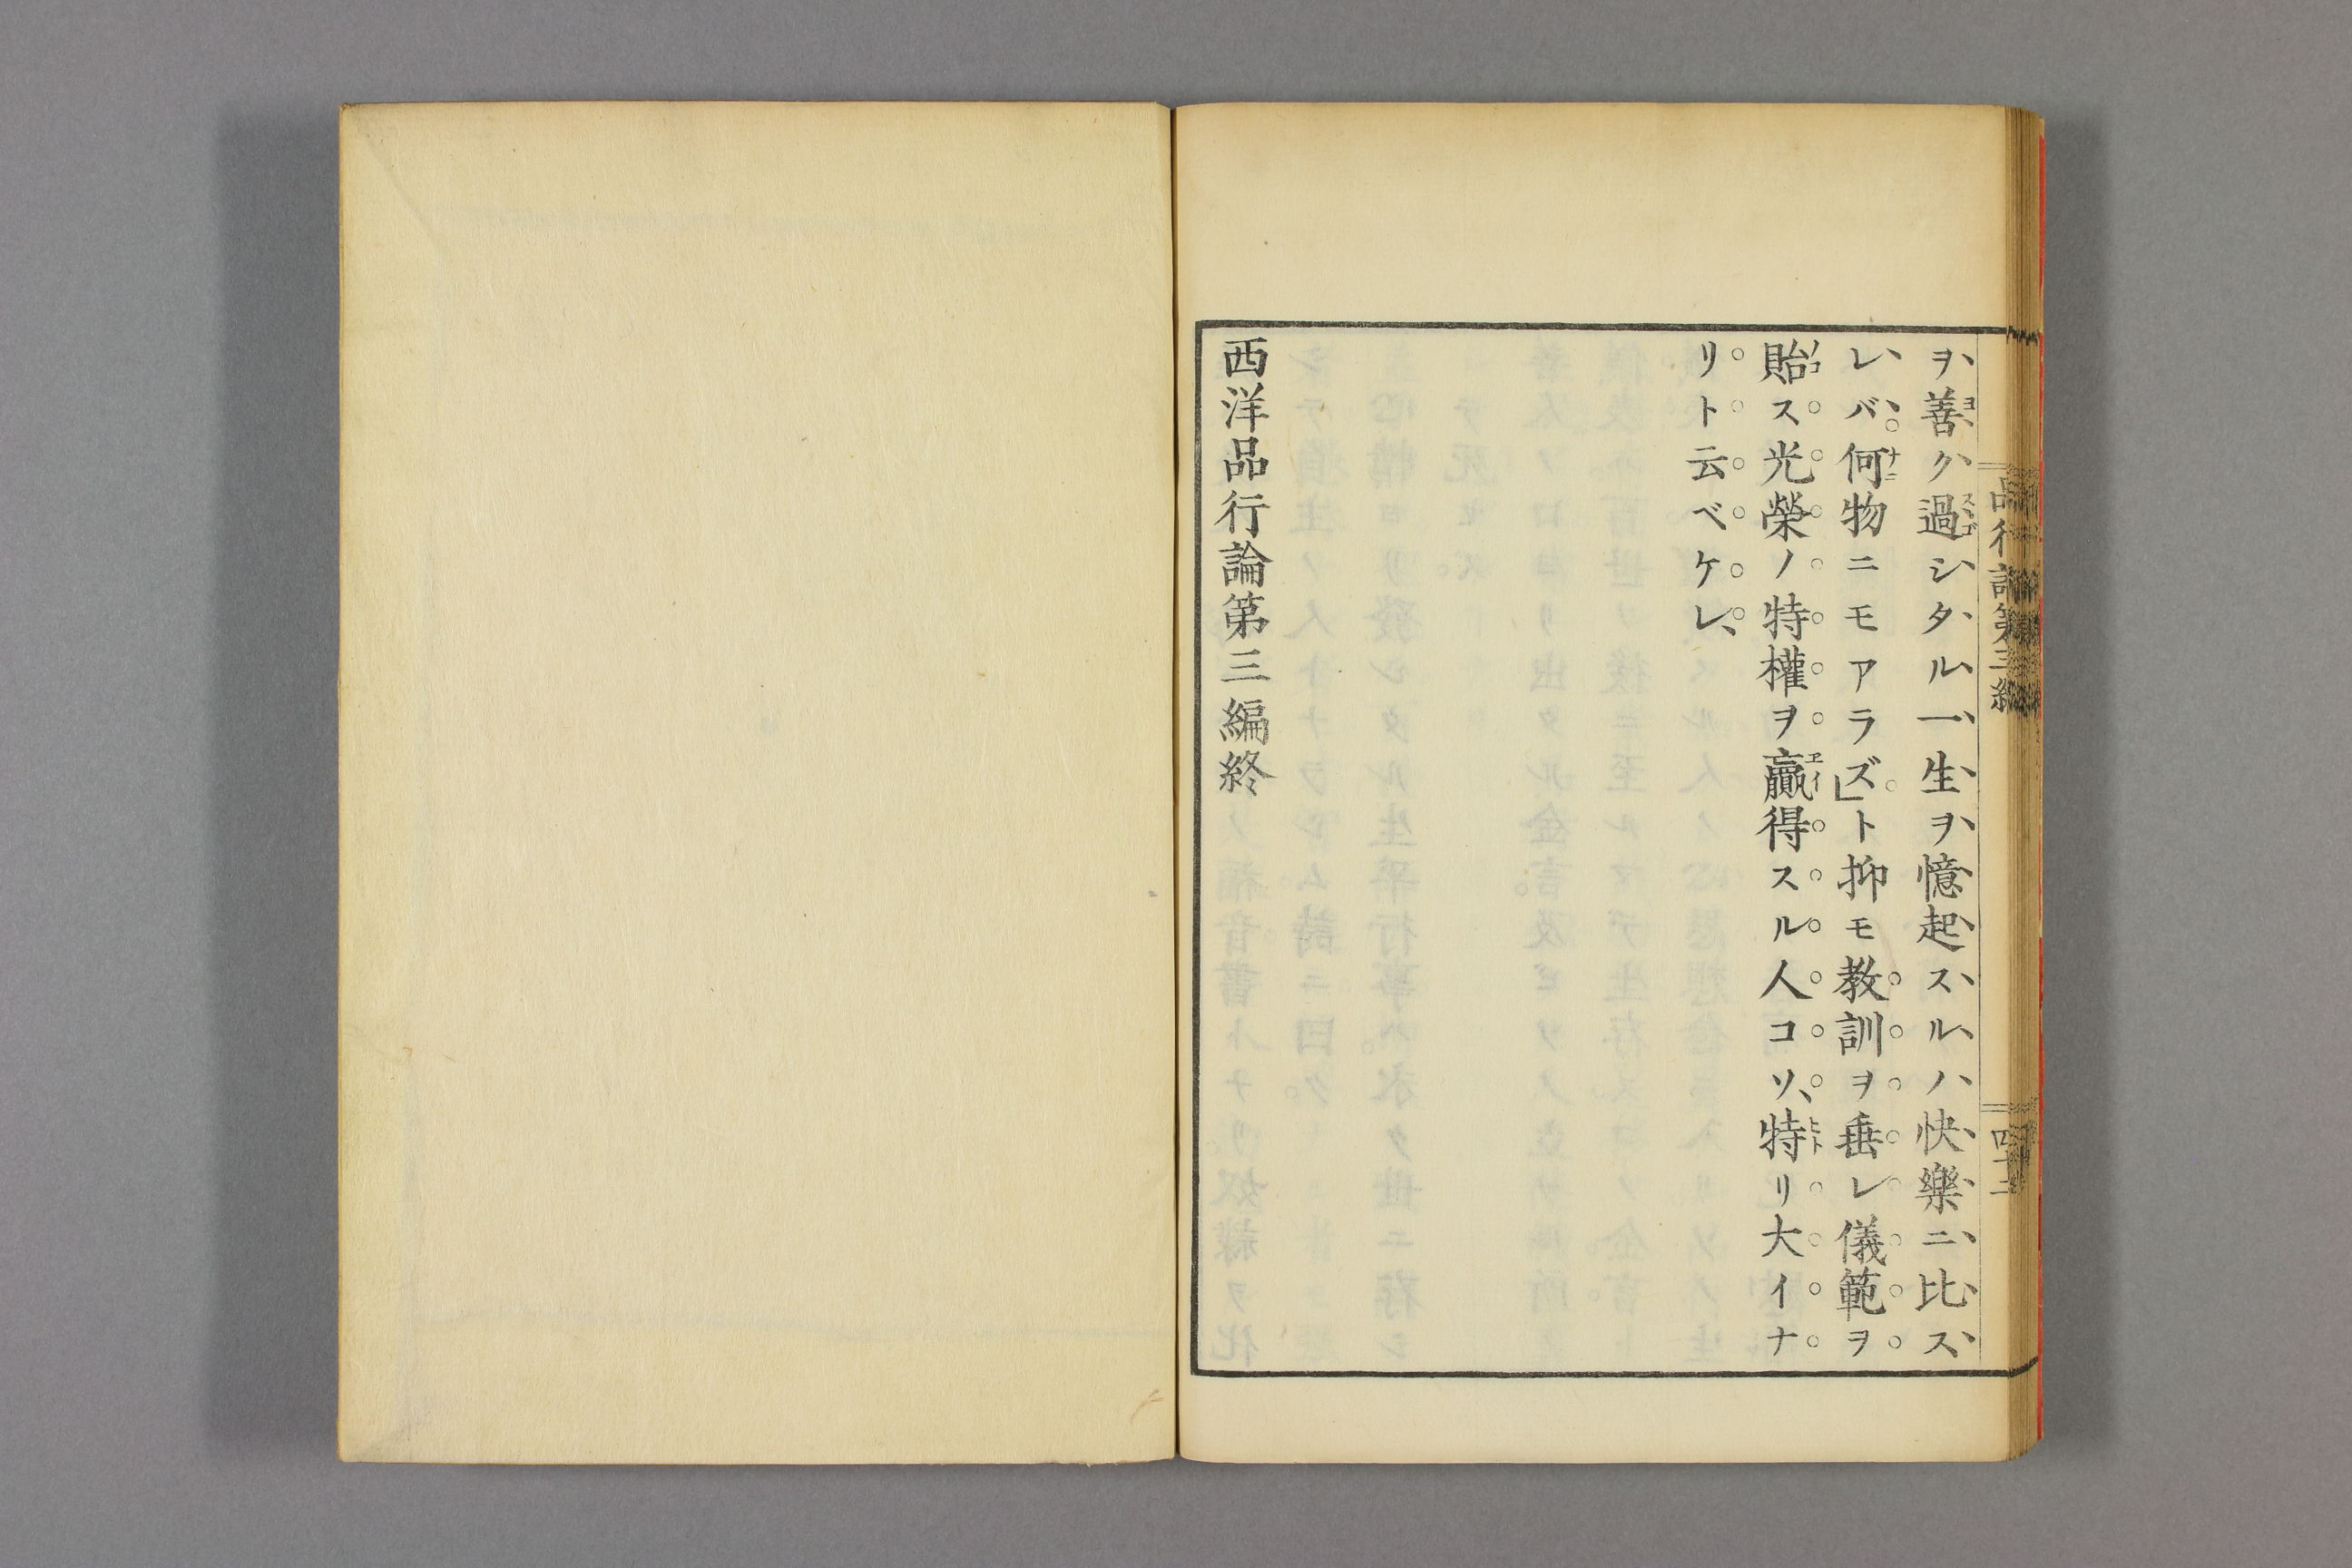 ヲ善ク過シタル一生ヲ憶起スルハ快樂ニ比ス
レバ何物ニモアラズ」ト抑モ教訓ヲ垂レ儀範ヲ
貽ス光榮ノ特權ヲ贏得スル人コソ、特リ大イナ
リト云ベケレ、
西洋品行論第三編終